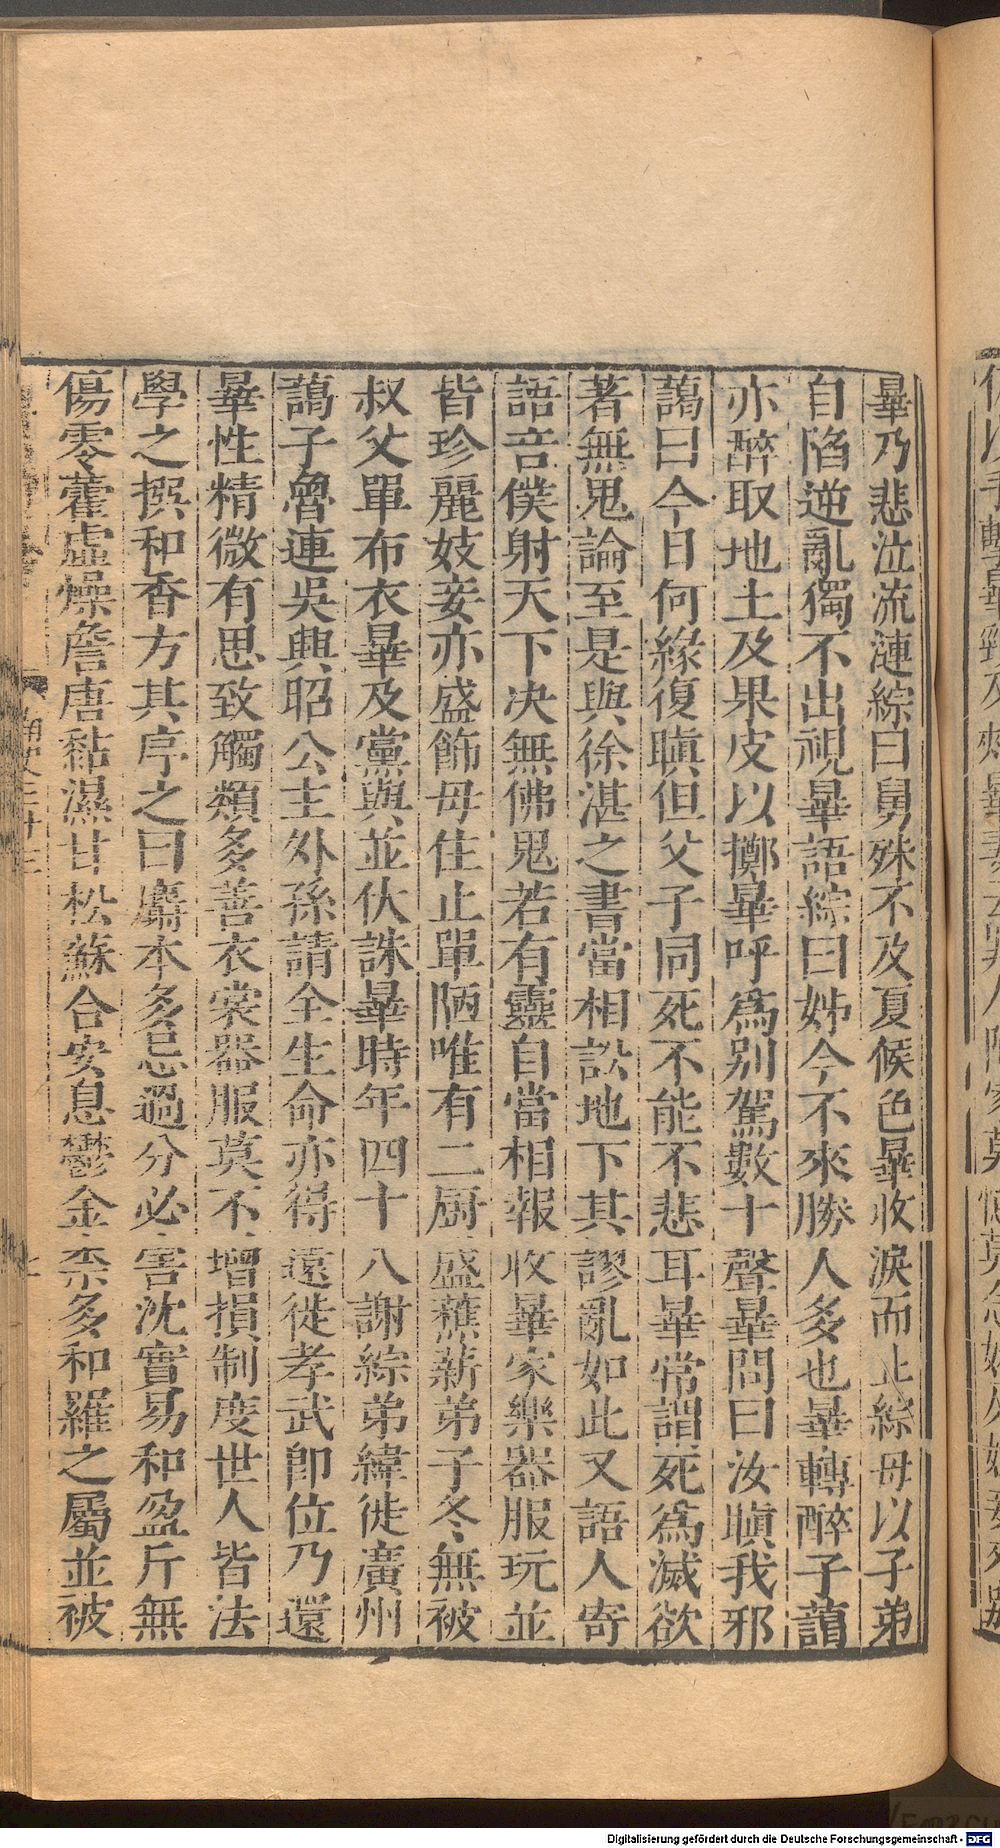 曅乃悲泣流漣綜曰舅殊不及夏候色曅收淚而止綜母以子弟
自陷逆亂獨不出視曅語綜曰姊今不來勝人多也曅轉醉子藹
亦醉取地土及果皮以擲曅呼爲别駕數十聲曅問曰汝瞋我邪
藹曰今日何緣復瞋但父子同死不能不悲耳曅常謂死爲滅欲
著無鬼論至是與徐湛之書當相訟地下其謬亂如此又語人寄
語咅僕射天下决無佛鬼若有靈自當相報收曅家樂器服玩並
皆珍麗妓妾亦盛飾母住止單陋唯有二厨盛蕉薪弟子冬無被
叔父單布衣曅及黨與並伏誅曅時年四十八謝綜弟緯徙廣州
藹子魯連吳興昭公主外孫請全生命亦得遠徙孝武卽位乃還
曅性精微有思致觸類多善衣裳器服莫不增損制度世人皆法
學之撰和香方其序之曰麝本多忌過分必害沈實易和盈斤無
傷零藿虛燥詹唐黏濕甘松蘇合安息鬱金柰多和羅之屬並被
南史三十三
Digitalisierung gefördert durch die Deutsche Forschungsgemeinschaft - DFG